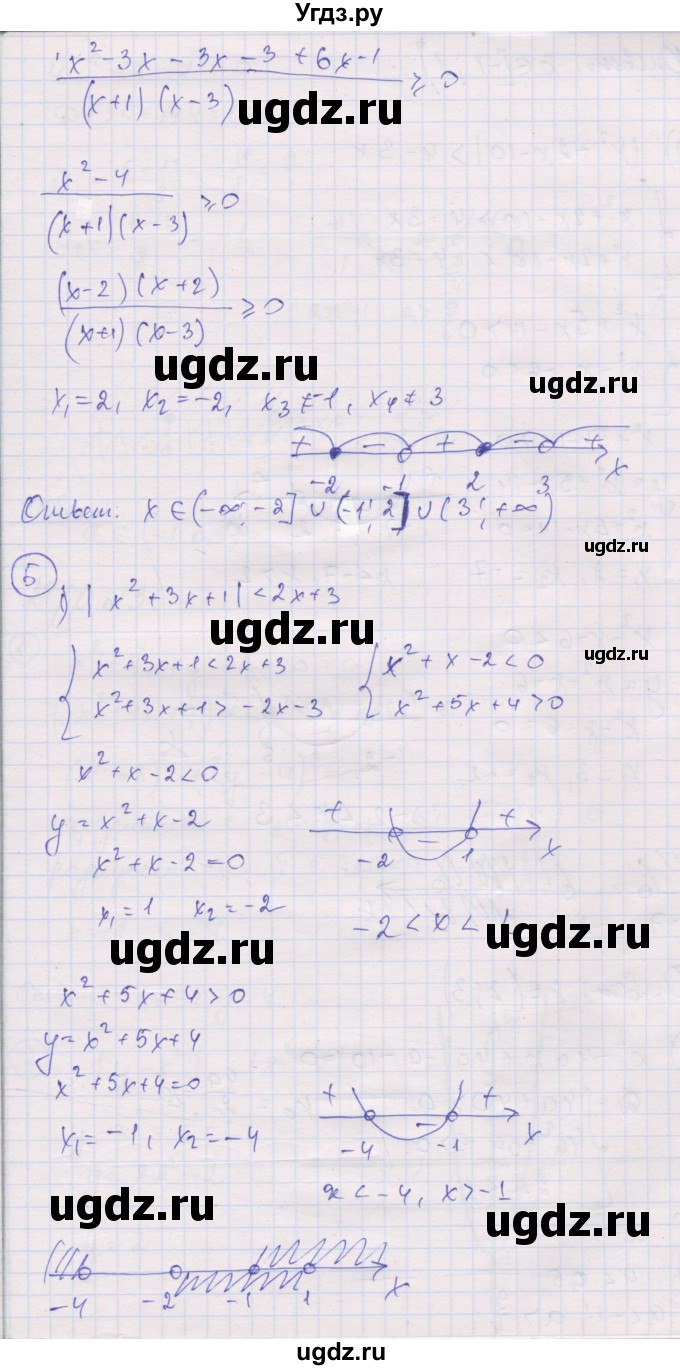 Угдз.ру
x² - 3x - 3x - 3 + 6x - 1
(x+1) (x-3) ≥ 0
ugdz.ru
x² - 4
(x+1)(x-3) ≥ 0
(x-2)(x+2)
(x+1)(x-3) ≥ 0
ugdz.ru
ugdz.ru
x₁ = 2, x₂ = -2, x₃ ≠ -1, x₄ ≠ 3
+ - + - + x
-2 -1 2 3
Ответ: x ∈ (-∞; -2] ∪ (-1; 2] ∪ (3; +∞)
ugdz.ru
5
1) |x² + 3x + 1| < 2x + 3
ugdz.ru
ugdz.ru
{ x² + 3x + 1 < 2x + 3 { x² + x - 2 < 0
x² + 3x + 1 > -2x - 3 x² + 5x + 4 > 0
x² + x - 2 < 0
y = x² + x - 2
x² + x - 2 = 0
+ - + x
-2 1
x₁ = 1 x₂ = -2
-2 < x < 1
ugdz.ru
ugdz.ru
x² + 5x + 4 > 0
y = x² + 5x + 4
x² + 5x + 4 = 0
+ - + x
-4 -1
x₁ = -1, x₂ = -4
x < -4, x > -1
ugdz.ru
ugdz.ru
-4 -2 -1 1 x
ugdz.ru